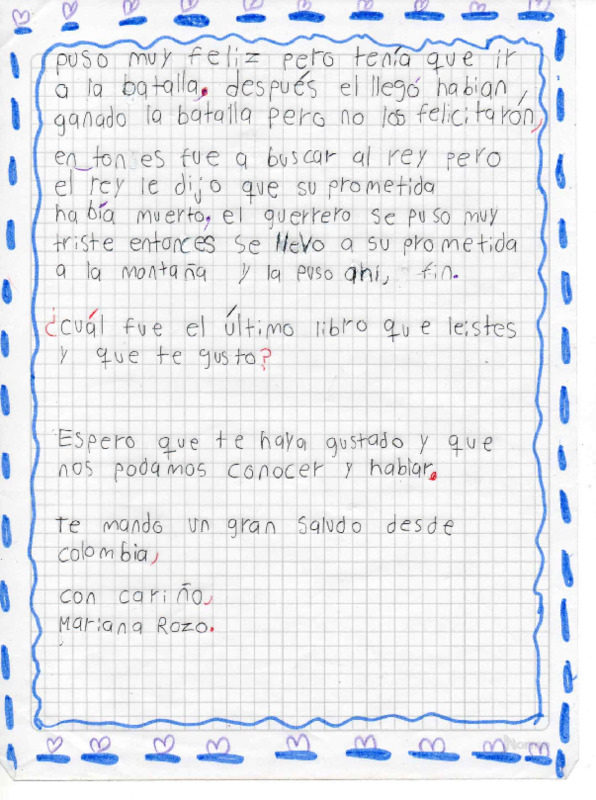 puso muy feliz pero tenía que ir
a la batalla, después el llegó habian,
ganado la batalla pero no los felicitarón,
en tonses fue a buscar al rey pero
el rey le dijo que su prometida
había muerto, el guerrero se puso muy
triste entonces se llevo a su prometida
a la montaña y la puso ahi, fin.
¿cuál fue el último libro que leistes
y que te gusto?
Espero que te haya gustado y que
nos podamos conocer y hablar.
te mando un gran saludo desde
colombia,
con cariño,
Mariana Rozo.